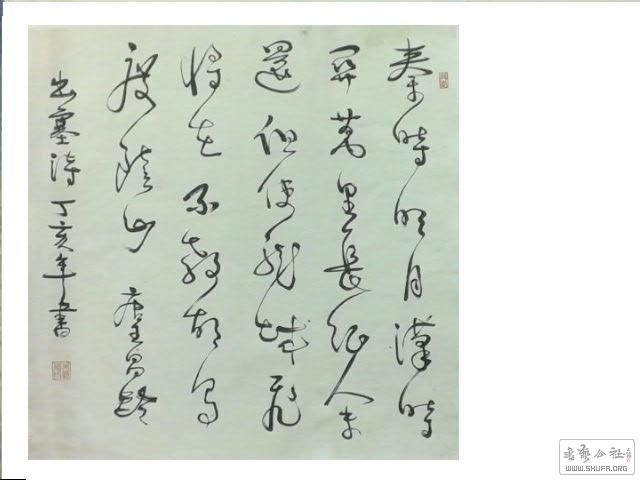 秦時明月漢時
關萬里長征人未
還但使龍城飛
將在不教胡馬
度陰山 唐王昌齡
出塞詩丁亥年書
書藝公社
WWW.SHUFA.ORG